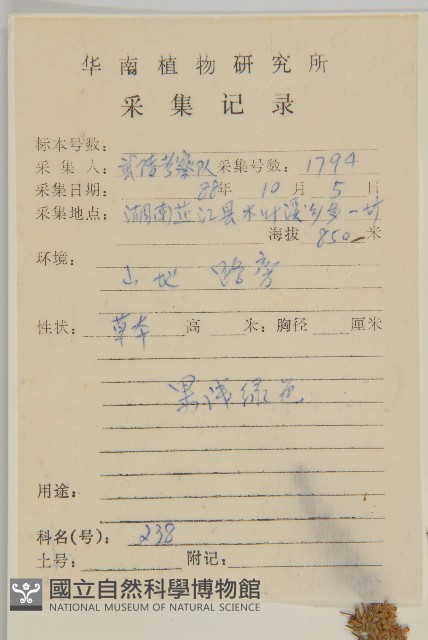 华南植物研究所
采集记录
标本号数:
采集人: 武陵考察队 采集号数: 1794
采集日期: 88年 10月 5日
采集地点: 湖南芷江县木叶溪乡
海拔 850 米
环境:
山地 路旁
性状: 草本 高 米; 胸径 厘米
果浅绿色
用途:
科名(号): 238
土号: 附记:
國立自然科學博物館
NATIONAL MUSEUM OF NATURAL SCIENCE